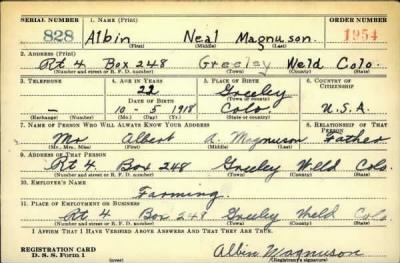 SERIAL NUMBER 1. NAME (Print) ORDER NUMBER
828 Albin Neal Magnuson. 1954
(First) (Middle) (Last)
2. ADDRESS (Print)
Rt 4 Box 248 Greeley Weld Colo.
(Number and street or R. F. D. number) (Town) (County) (State)
3. TELEPHONE 4. AGE IN YEARS 5. PLACE OF BIRTH 6. COUNTRY OF CITIZENSHIP
22 Greeley
DATE OF BIRTH (Town or county)
— 10-5-1918 Colo U.S.A.
(Exchange) (Number) (Mo.) (Day) (Yr.) (State or country)
7. NAME OF PERSON WHO WILL ALWAYS KNOW YOUR ADDRESS 8. RELATIONSHIP OF THAT PERSON
Mr Albert A. Magnuson Father
(Mr., Mrs., Miss) (First) (Middle) (Last)
9. ADDRESS OF THAT PERSON
Rt 4. Box 248 Greeley Weld Colo
(Number and street or R. F. D. number) (Town) (County) (State)
10. EMPLOYER'S NAME
Farming.
11. PLACE OF EMPLOYMENT OR BUSINESS
Rt 4. Box 248 Greeley Weld Colo
(Number and street or R. F. D. number) (Town) (County) (State)
I AFFIRM THAT I HAVE VERIFIED ABOVE ANSWERS AND THAT THEY ARE TRUE.
REGISTRATION CARD
D. S. S. Form 1 Albin Magnuson
(over) (Registrant's signature)